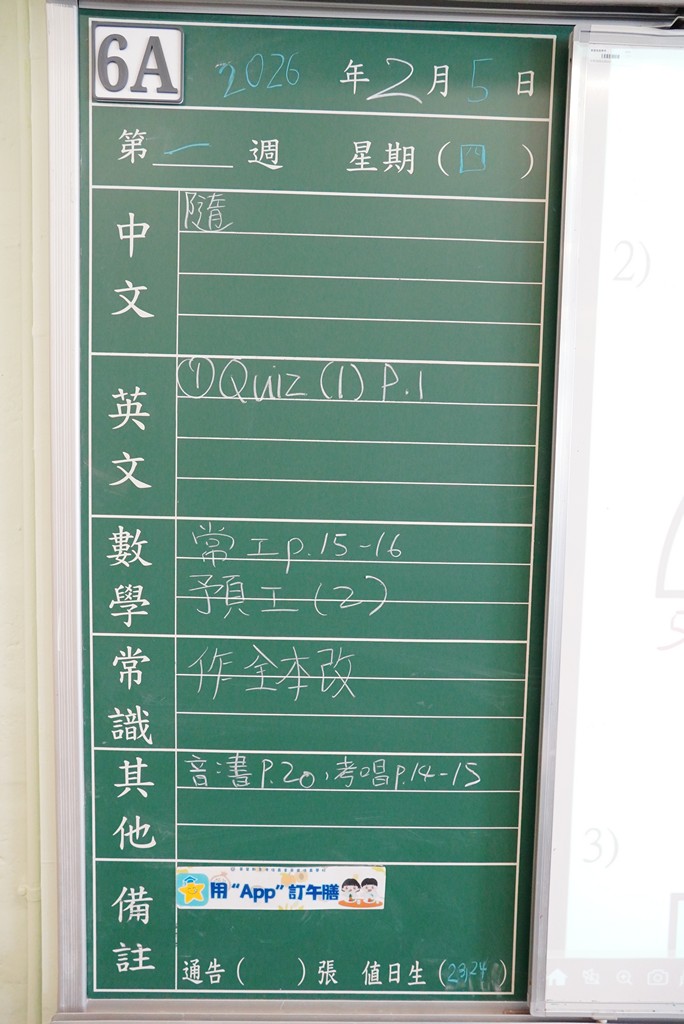 6A 2026 年 2 月 5 日
第 一 週 星期（四）
中文 隨
英文 ①Quiz (1) P.1
數學 常工p.15-16
預工(2)
常識 作全本改
其他 音書P.20，考唱p.14-15
備註 用“App”訂午膳
通告（ ）張 值日生（23,24）
2)
3)